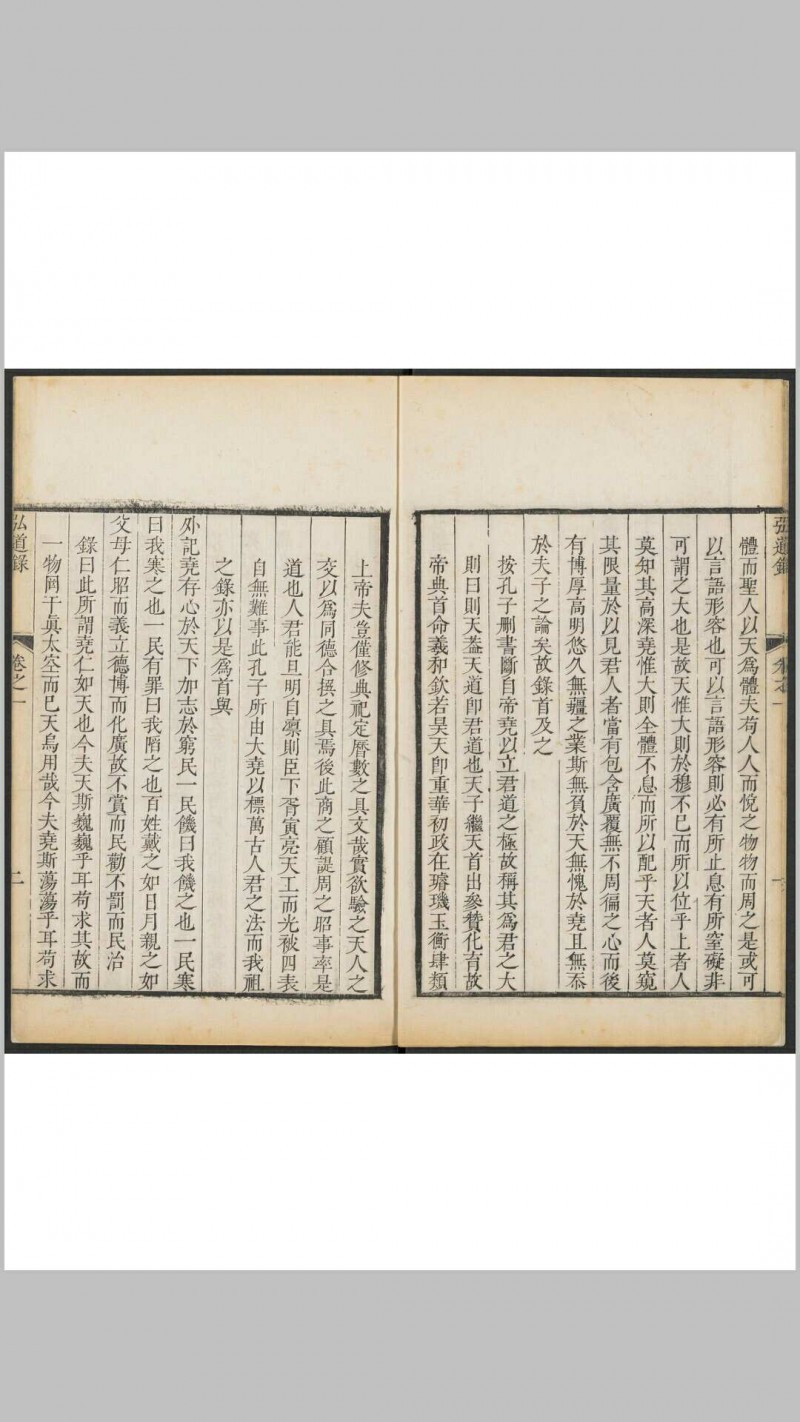 弘道錄
卷之一
一
體而聖人以天爲體夫苟人人而悅之物物而周之是或可
以言語形容也可以言語形容則必有所止息有所窒礙非
可謂之大也是故天惟大則於穆不已而所以位乎上者人
莫知其高深堯惟大則全體不息而所以配乎天者人莫窺
其限量於以見君人者當有包含廣覆無不周徧之心而後
有博厚高明悠久無疆之業斯無負於天無愧於堯且無忝
於夫子之論矣故錄首及之
按孔子刪書斷自帝堯以立君道之極故稱其爲君之大
則曰則天葢天道卽君道也天子繼天首出參贊化育故
帝典首命羲和欽若昊天卽重華初政在璿璣玉衡肆類
上帝夫豈僅修典祀定曆數之具文哉實欲驗之天人之
交以爲同德合撰之具焉後此商之顧諟周之昭事率是
道也人君能旦明自凛則臣下胥寅亮天工而光被四表
自無難事此孔子所由大堯以標萬古人君之法而我祖
之錄亦以是爲首與
外記堯存心於天下加志於窮民一民饑曰我饑之也一民寒
曰我寒之也一民有罪曰我陷之也百姓戴之如日月親之如
父母仁昭而義立德博而化廣故不賞而民勸不罰而民治
錄曰此所謂堯仁如天也今夫天斯巍巍乎耳苟求其故而
一物罔干眞太空而已天烏用哉今夫堯斯蕩蕩乎耳苟求
弘道錄
卷之一
二